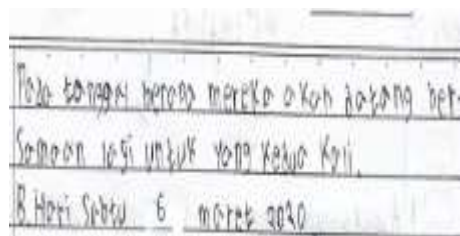 Pada tanggal berapa mereka akan datang ber-
samaan lagi untuk yang kedua kali.
B. Hari Sabtu 6 maret 2020